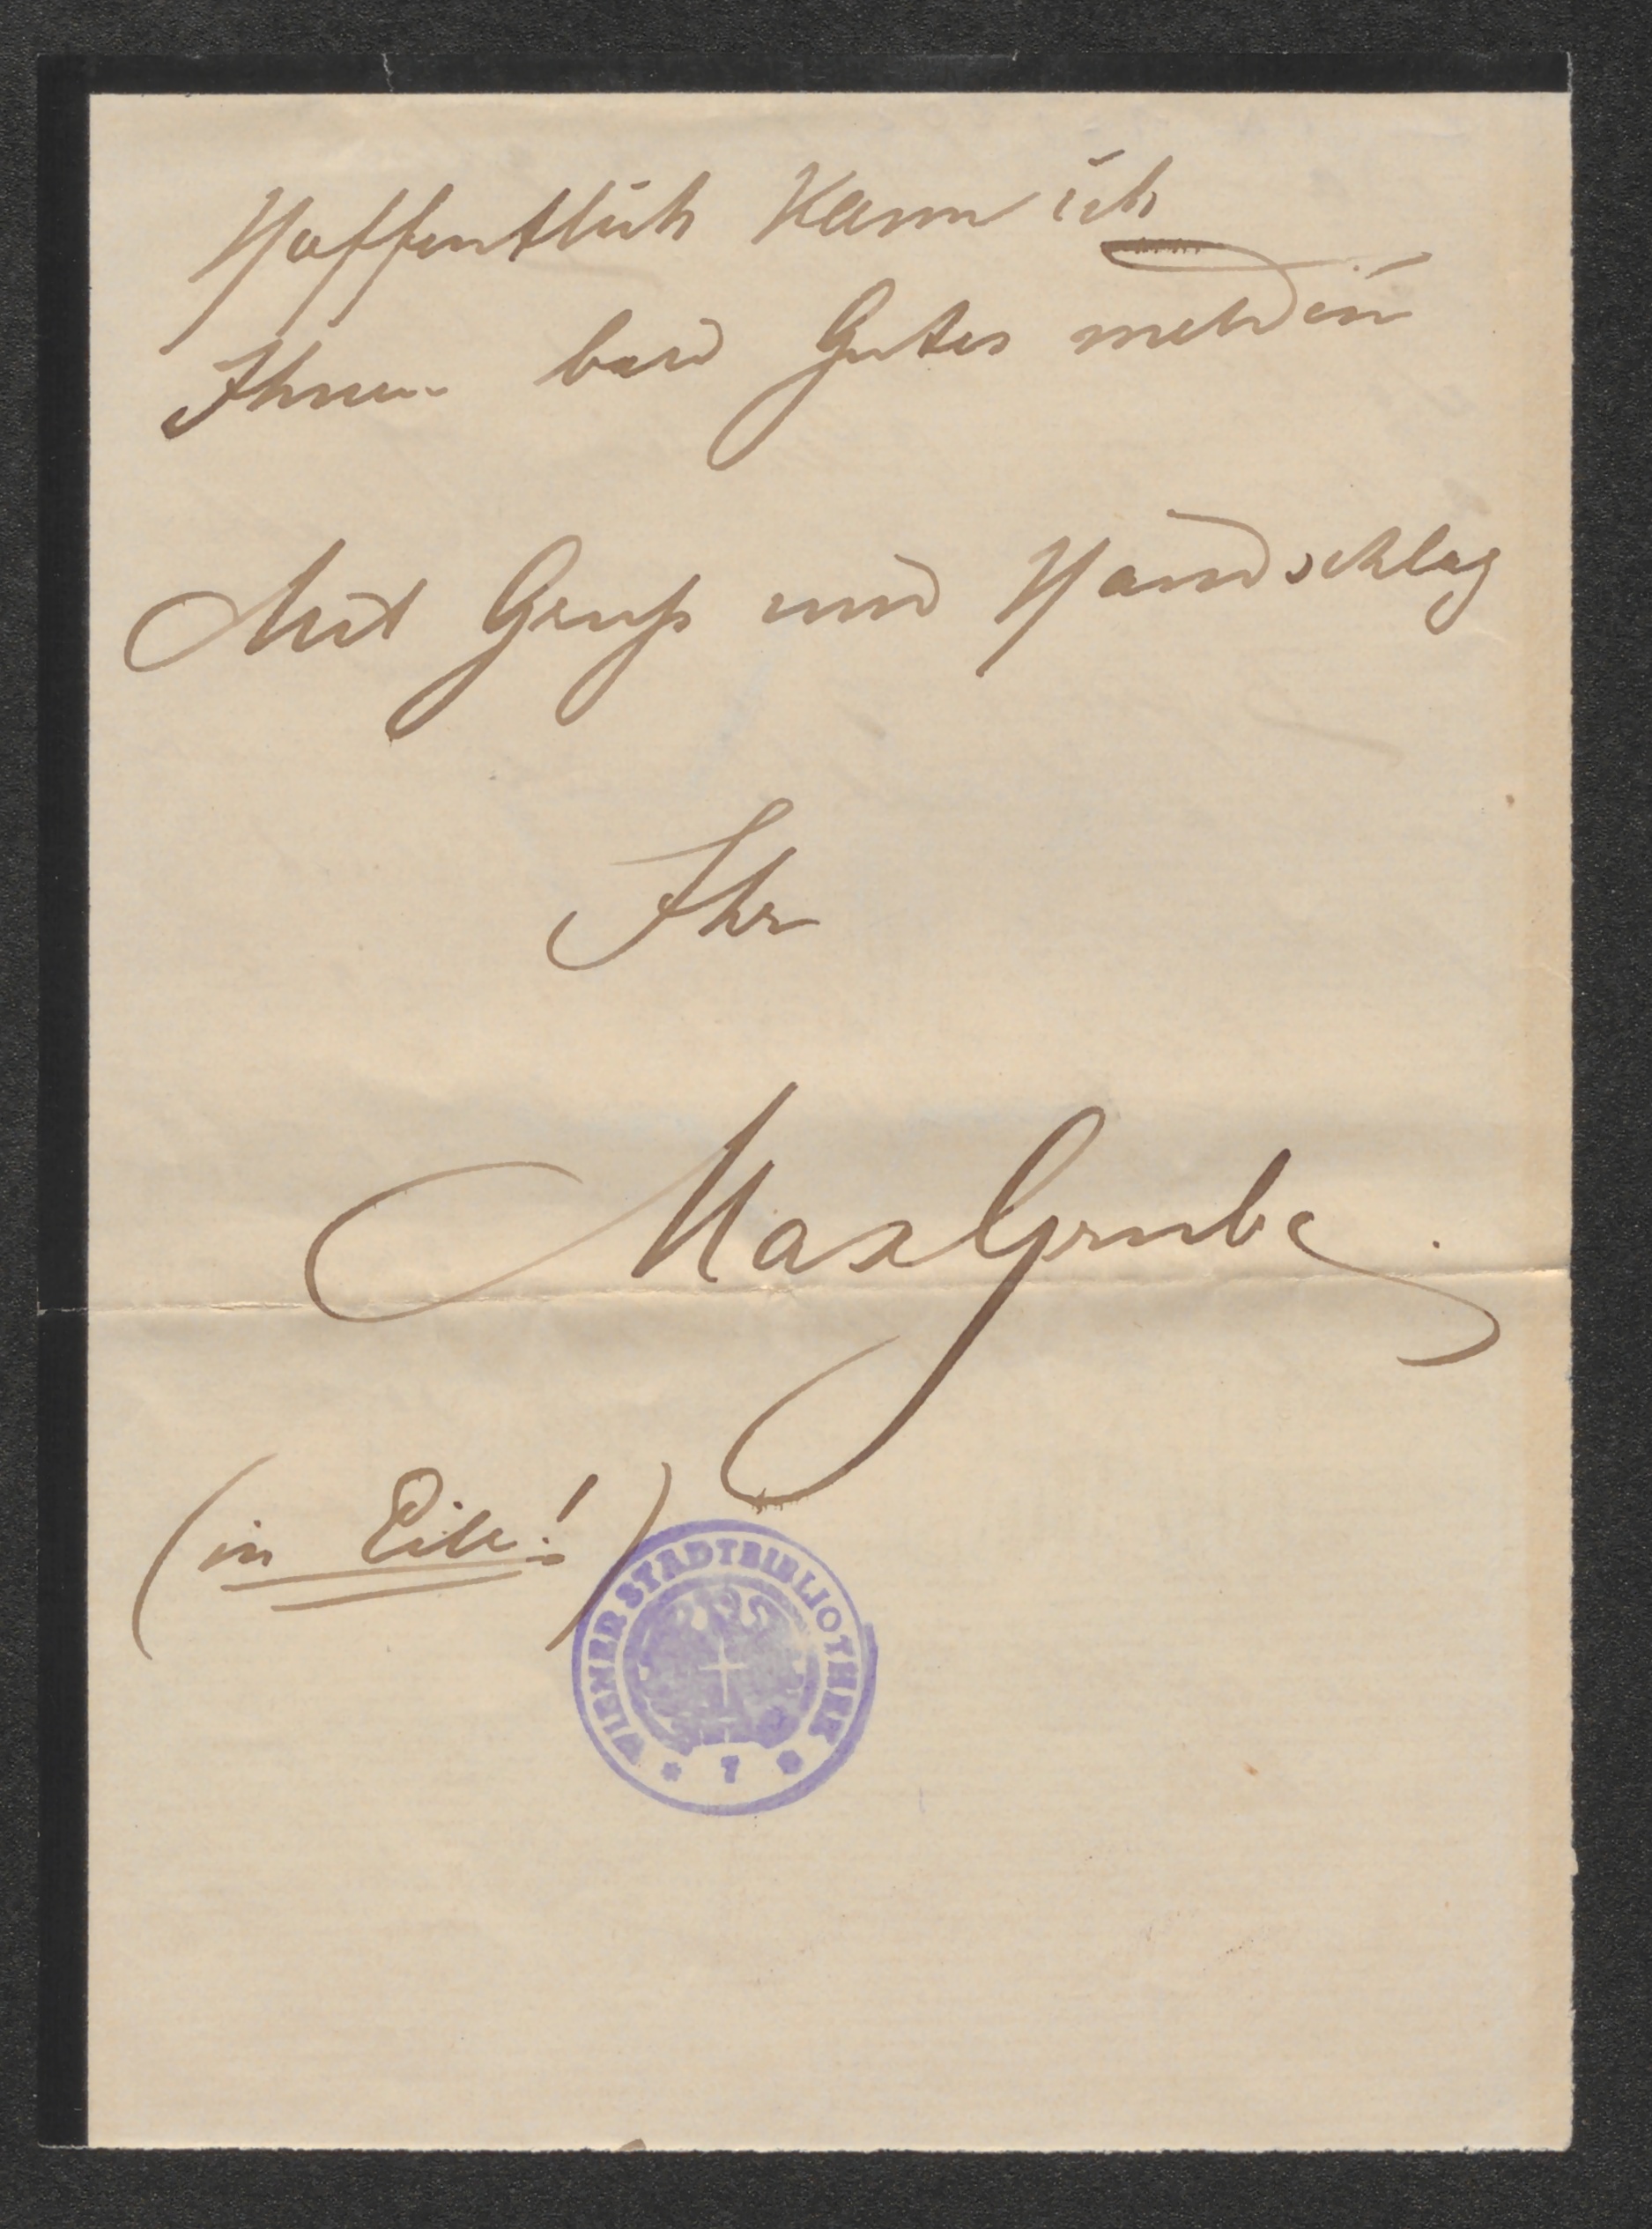 Hoffentlich kann ich
Ihnen bald Gutes melden
Mit Gruß und Handschlag
Ihr
Max Grube.
(in Eile!)
WIENER STADTBIBLIOTHEK
* 7 *